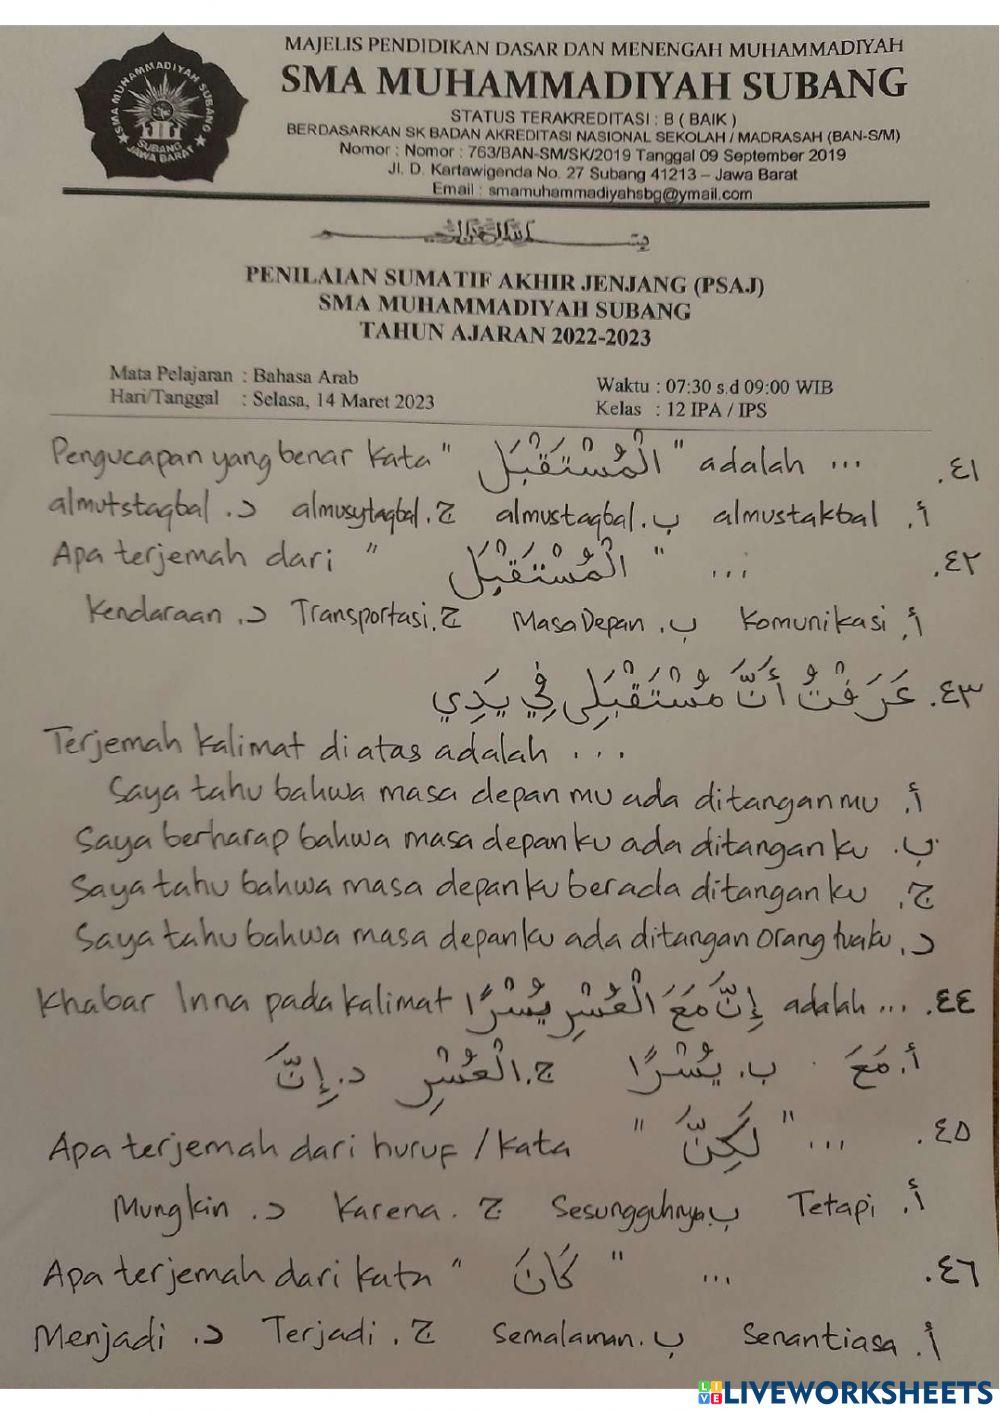 MAJELIS PENDIDIKAN DASAR DAN MENENGAH MUHAMMADIYAH
SMA MUHAMMADIYAH SUBANG
STATUS TERAKREDITASI : B ( BAIK )
BERDASARKAN SK BADAN AKREDITASI NASIONAL SEKOLAH / MADRASAH (BAN-S/M)
Nomor : Nomor : 763/BAN-SM/SK/2019 Tanggal 09 September 2019
Jl. D. Kartawigenda No. 27 Subang 41213 – Jawa Barat
Email : smamuhammadiyahsbg@ymail.com
SMA MUHAMMADIYAH SUBANG
SUBANG
JAWA BARAT
PENILAIAN SUMATIF AKHIR JENJANG (PSAJ)
SMA MUHAMMADIYAH SUBANG
TAHUN AJARAN 2022-2023
Mata Pelajaran : Bahasa Arab
Hari/Tanggal : Selasa, 14 Maret 2023
Waktu : 07:30 s.d 09:00 WIB
Kelas : 12 IPA / IPS
٤١. Pengucapan yang benar kata " الْمُسْتَقْبَل " adalah ...
أ. almustakbal ب. almustaqbal ج. almusytaqbal د. almutstaqbal
٤٢. Apa terjemah dari " الْمُسْتَقْبَل " ...
أ. Komunikasi ب. Masa Depan ج. Transportasi د. Kendaraan
٤٣. عَرَفْتُ أَنَّ مُسْتَقْبَلِي فِي يَدِي
Terjemah kalimat diatas adalah ...
أ. Saya tahu bahwa masa depan mu ada ditangan mu
ب. Saya berharap bahwa masa depan ku ada ditangan ku
ج. Saya tahu bahwa masa depan ku berada ditangan ku
د. Saya tahu bahwa masa depanku ada ditangan orang tuaku
٤٤. Khabar Inna pada kalimat إِنَّ مَعَ الْعُسْرِ يُسْرًا adalah ...
أ. مَعَ ب. يُسْرًا ج. الْعُسْرِ د. إِنَّ
٤٥. Apa terjemah dari huruf / kata " لَكِنَّ " ...
أ. Tetapi ب. Sesungguhnya ج. Karena د. Mungkin
٤٦. Apa terjemah dari kata " كَانَ " ...
أ. Senantiasa ب. Semalaman ج. Terjadi د. Menjadi
LIVEWORKSHEETS